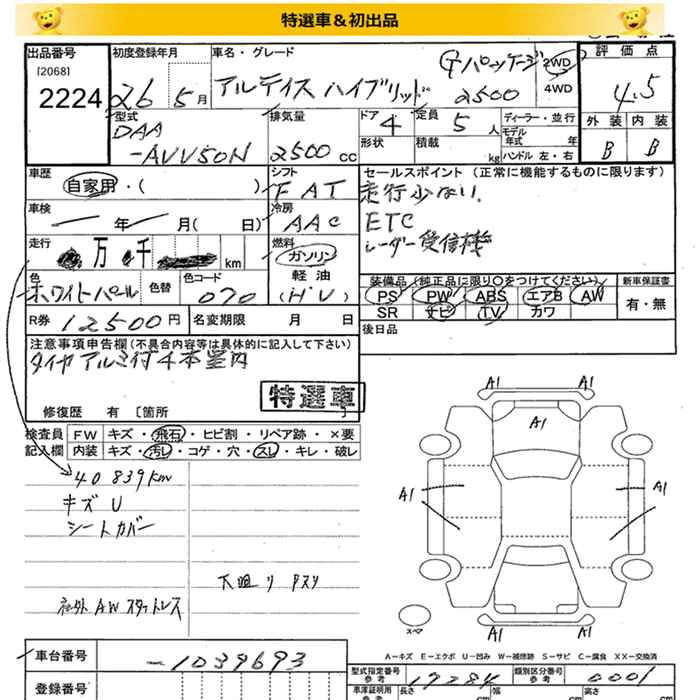 特選車＆初出品
出品番号 初度登録年月 車名・グレード Gパッケージ 2WD 評価点
[2068] 4WD
2224 26 5月 アルティス ハイブリッド 2500 4.5
型式 排気量 ドア 定員 ディーラー・並行 外装 内装
DAA 4 5人 モデル年式 年式
-AVV50N 2500cc 形状 積載 kg ハンドル 左・右 B B
車歴 シフト セールスポイント (正常に機能するものに限ります)
自家用・( ) FAT 走行少ない
車検 年 月( 日) 冷房 AAC ETC
レーダー受信機
走行 万 千 km 燃料 ガソリン
軽油
色 色替 色コード (HV) 装備品 (純正品に限り○をつけてください) 新車保証書
ホワイトパール 070 PS PW ABS エアB AW 有・無
SR ナビ TV カワ
R券 12500円 名変期限 月 日 後日品
注意事項申告欄(不具合内容等は具体的に記入して下さい)
タイヤアルミ付4本室内
特選車
修復歴 有 [箇所 ]
検査員 FW キズ・飛石・ヒビ割・リペア跡・×要
記入欄 内装 キズ・汚レ・コゲ・穴・スレ・キレ・破レ
40839km
キズU
シートカバー
下廻り
社外AWスタットレス
A1 A1
A1
A1 A1
A1 A1
スペア
A－キズ E－エクボ U－凹み W－補修跡 S－サビ C－腐食 XX－交換済
車台番号 -1039693
型式指定番号 参考 17284 類別区分番号 参考 0001
登録番号 車庫証明用 参考 長さ cm 幅 cm 高さ cm